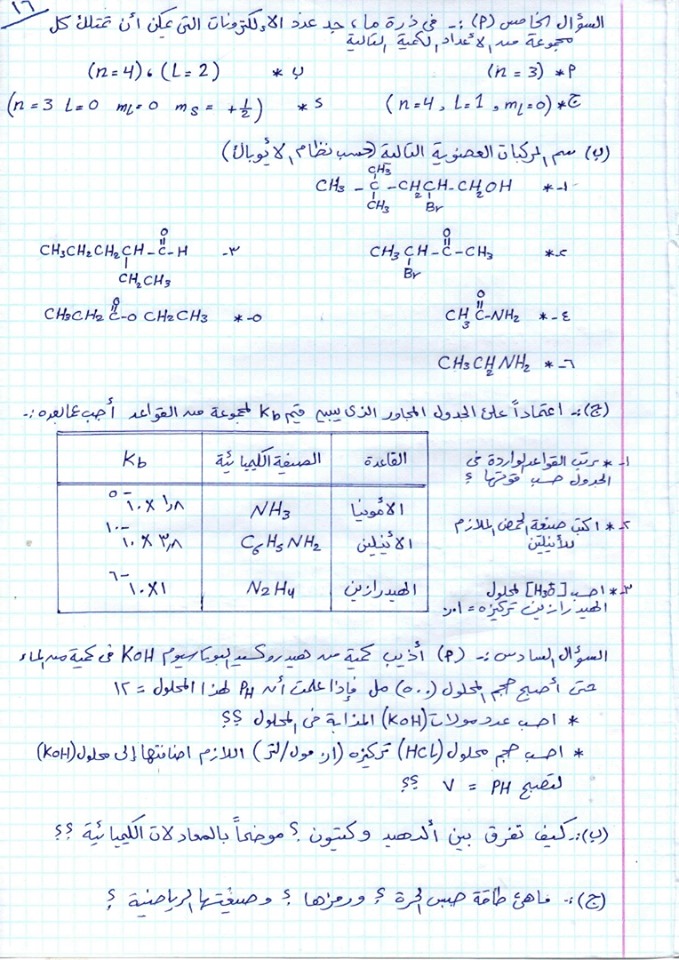 ١٦
السؤال الخامس (P) :- في ذرة ما، جد عدد الالكترونات التي يمكن أن تمتلك كل
مجموعة من الأعداد الكمية التالية
P * (n = 3)
ب * (n = 4) ، (L = 2)
ج * (n=4, L=1, mL=0)
د * (n=3 L=0 mL=0 mS = +1/2)
(ب) سم المركبات العضوية التالية (حسب نظام الأيوباك)
CH3
١-* CH3 - C - CH2CH-CH2OH
CH3 Br
O
٢-* CH3CH - C - CH3
Br
O
٣- CH3CH2CH2CH-C-H
CH2CH3
O
٤-* CH3C-NH2
O
٥-* CH3CH2C-O CH2CH3
٦-* CH3CH2NH2
(ج) :- اعتماداً على الجدول المجاور الذي يبين قيم Kb لمجموعة من القواعد أجب عما يليه :-
١-* رتب القواعد الواردة في
الجدول حسب قوتها ؟
٢-* اكتب صيغة الحمض الملازم
للأنيلين
٣-* احسب [H3O+] لمحلول
الهيدرازين تركيزه = ٠,١
القاعدة الصيغة الكيميائية Kb
الأمونيا NH3 ١,٨ × ١٠-٥
الأنيلين C6H5NH2 ٣,٨ × ١٠-١٠
الهيدرازين N2H4 ١×١٠-٦
السؤال السادس :- (P) أذيب كمية من هيدروكسيد البوتاسيوم KOH في كمية من الماء
حتى أصبح حجم المحلول (٥٠٠) مل فإذا علمت أن PH لهذا المحلول = ١٢
* احسب عدد مولات (KOH) المذابة في المحلول ؟؟
* احسب حجم محلول (HCl) تركيزه (٠,١ مول/لتر) اللازم اضافتها إلى محلول (KOH)
لتصبح PH = ٧ ؟؟
(ب) :- كيف تفرق بين ألدهيد وكيتون ؟ موضحاً بالمعادلات الكيميائية ؟؟
(ج) :- ماهي طاقة جبس الحرة ؟ ورمزها ؟ وصيغتها الرياضية ؟